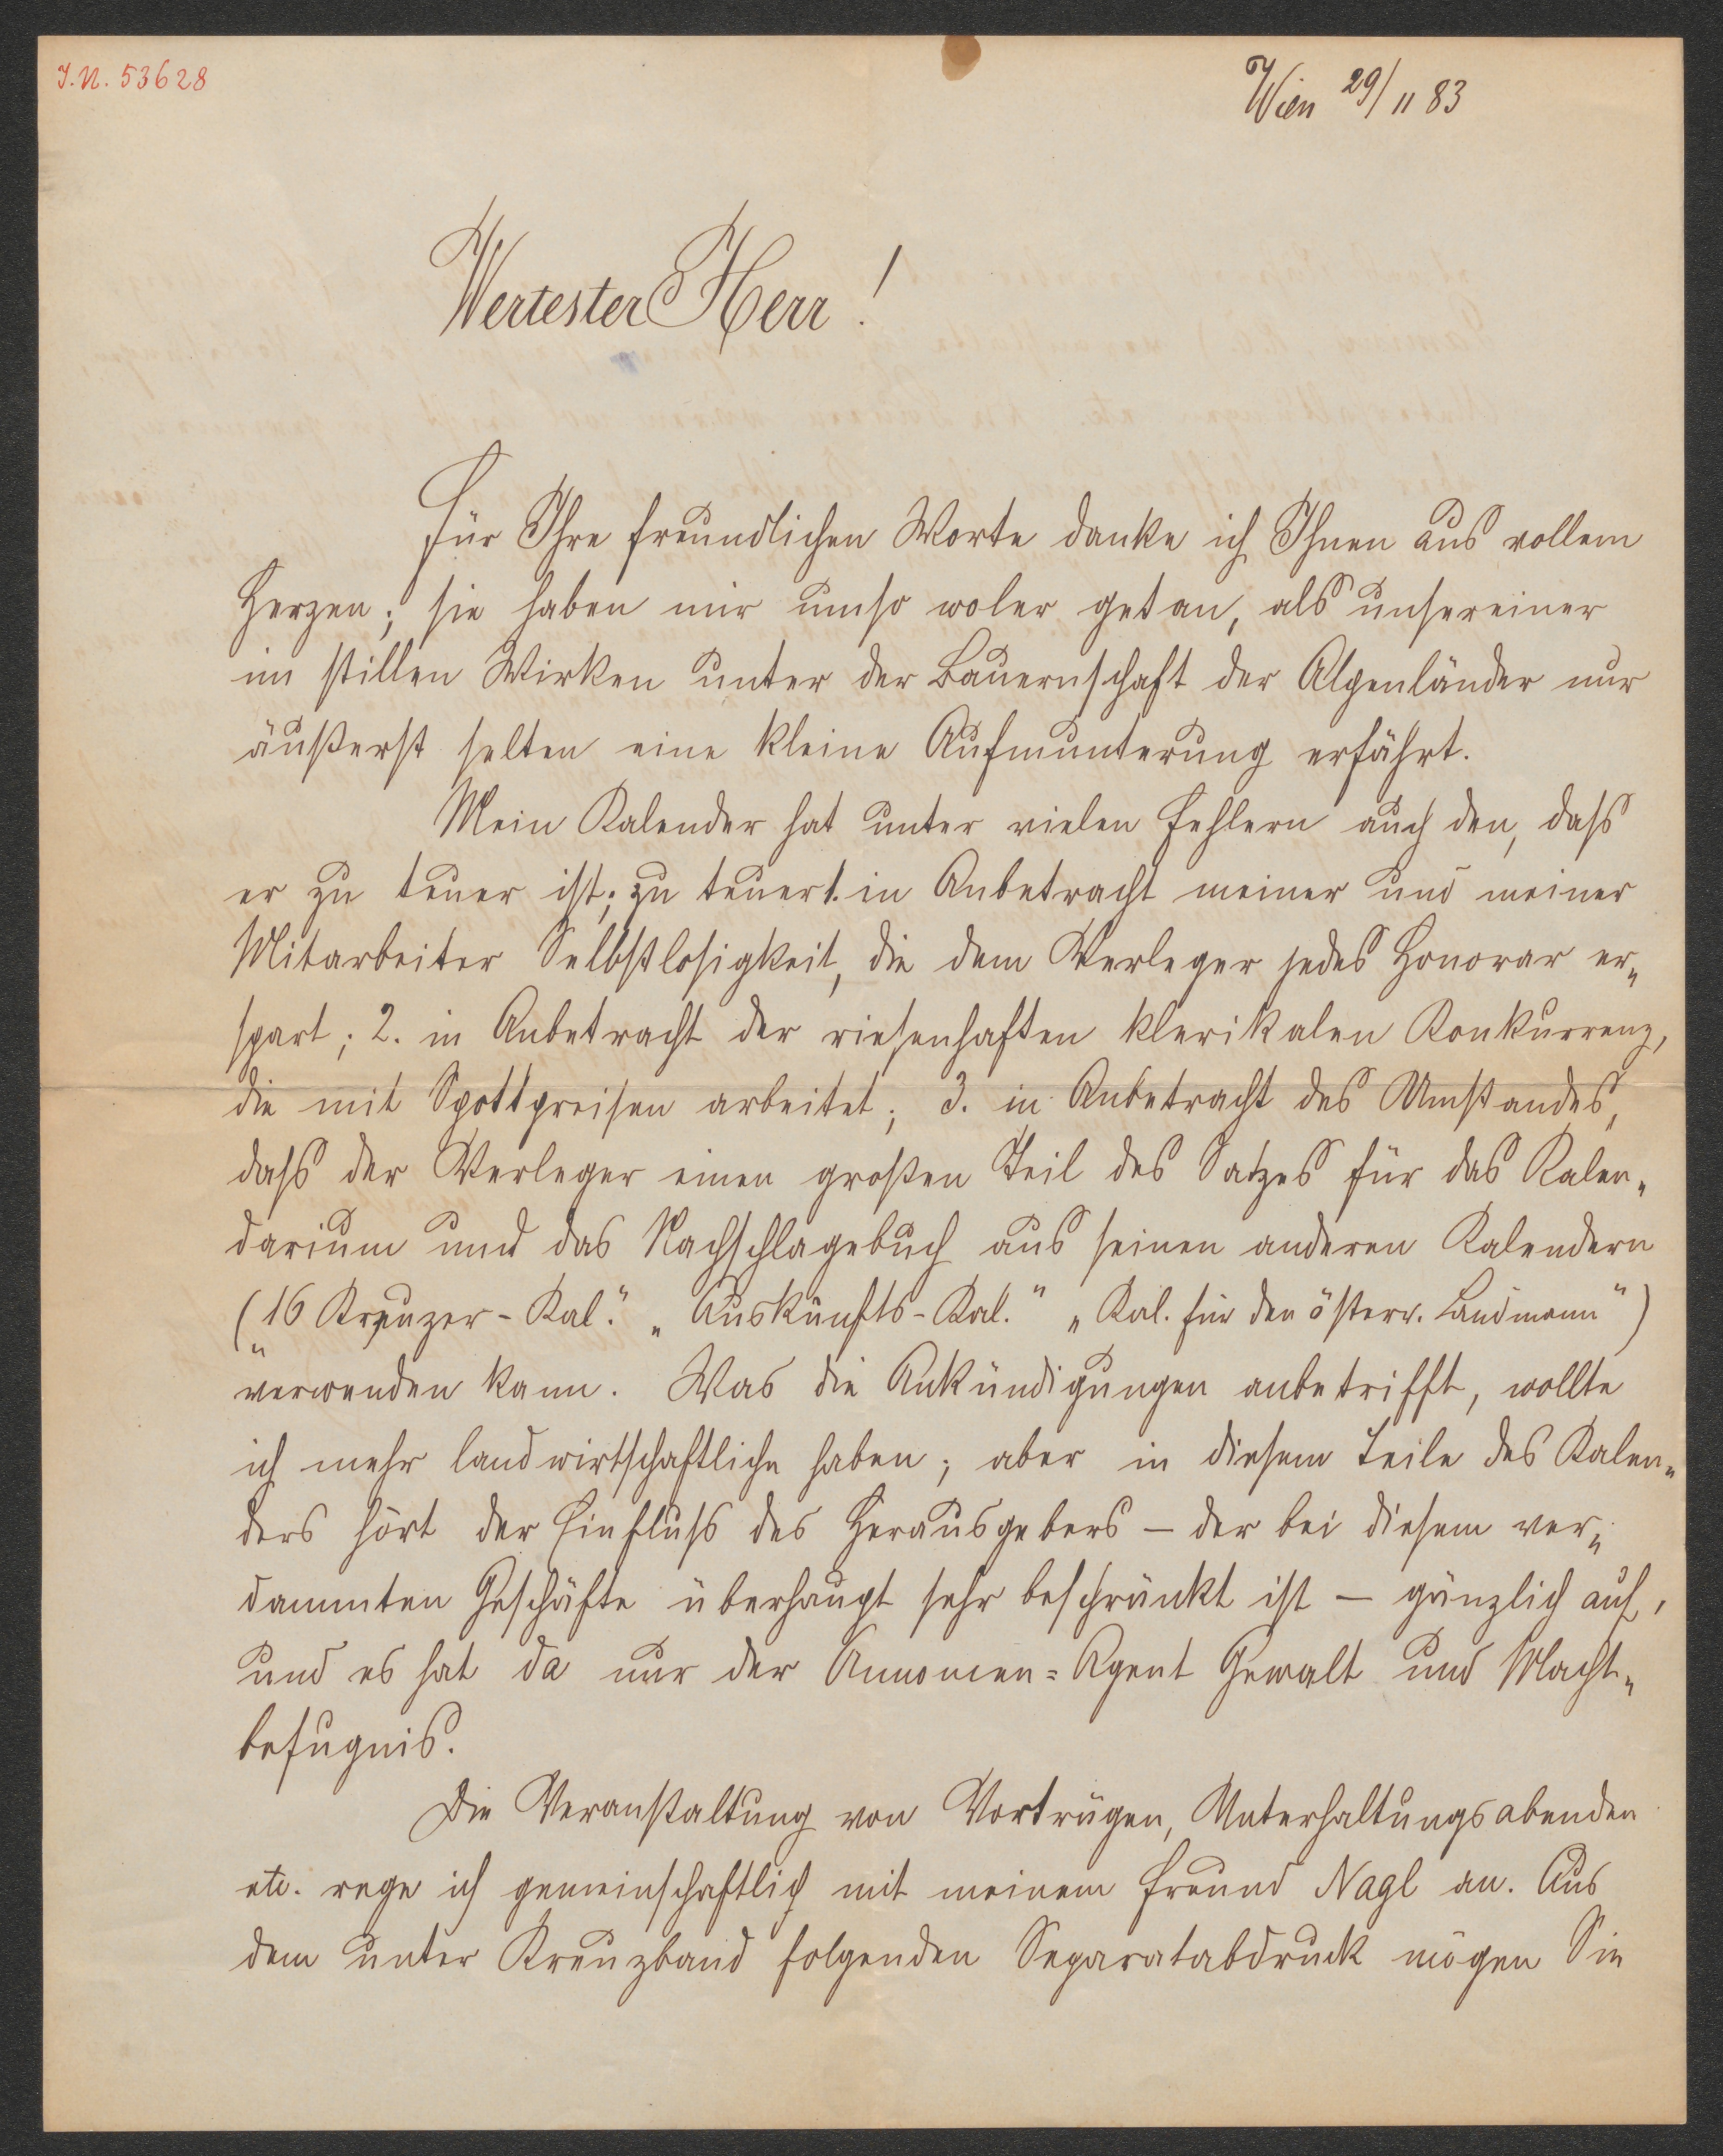 J.N. 53628
Wien 29/11 83
Wertester Herr!
Für Ihre freundlichen Worte danke ich Ihnen aus vollem
Herzen; sie haben mir umso woler getan, als unsereiner
im stillen Wirken unter der Bauernschaft der Alpenländer nur
äußerst selten eine kleine Aufmunterung erfährt.
Mein Kalender hat unter vielen Fehlern auch den, dass
er zu teuer ist; zu teuer 1. in Anbetracht meiner und meiner
Mitarbeiter Selbstlosigkeit, die dem Verleger jedes Honorar er„
spart; 2. in Anbetracht der riesenhaften klerikalen Konkurrenz,
die mit Spottpreisen arbeitet; 3. in Anbetracht des Umstandes,
dass der Verleger einen großen Teil des Satzes für das Kalen„
darium und das Nachschlagebuch aus seinen anderen Kalendern
(„16 Kreuzer-Kal." „Auskunfts-Kal." „Kal. für den österr. Landmann")
verwenden kann. Was die Ankündigungen anbetrifft, wollte
ich mehr landwirtschaftliche haben; aber in diesem Teile des Kalen„
ders hört der Einfluss des Herausgebers – der bei diesem ver„
dammten Geschäfte überhaupt sehr beschränkt ist – gänzlich auf,
und es hat da nur der Annoncen=Agent Gewalt und Macht„
befugnis.
Die Veranstaltung von Vorträgen, Unterhaltungsabenden
etc. rege ich gemeinschaftlich mit meinem Freund Nagl an. Aus
dem unter Kreuzband folgenden Separatabdruck mögen Sie